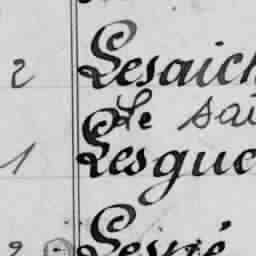 2 Lesaich
Le sai
1 Lesgue
2 Lespé